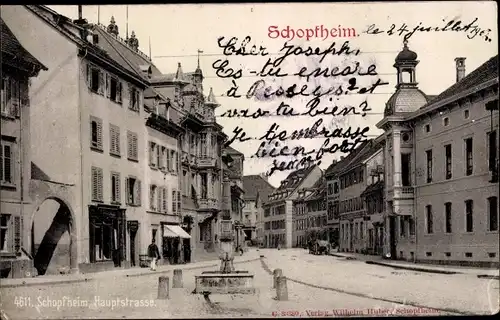 Schopfheim.
le 24 juillet 1902
Cher Joseph,
Es-tu encore
à et
vas-tu bien?
Je t'embrasse
bien fort
Jean
4611. Schopfheim. Hauptstrasse.
Verlag Wilhelm Huber, Schopfheim.